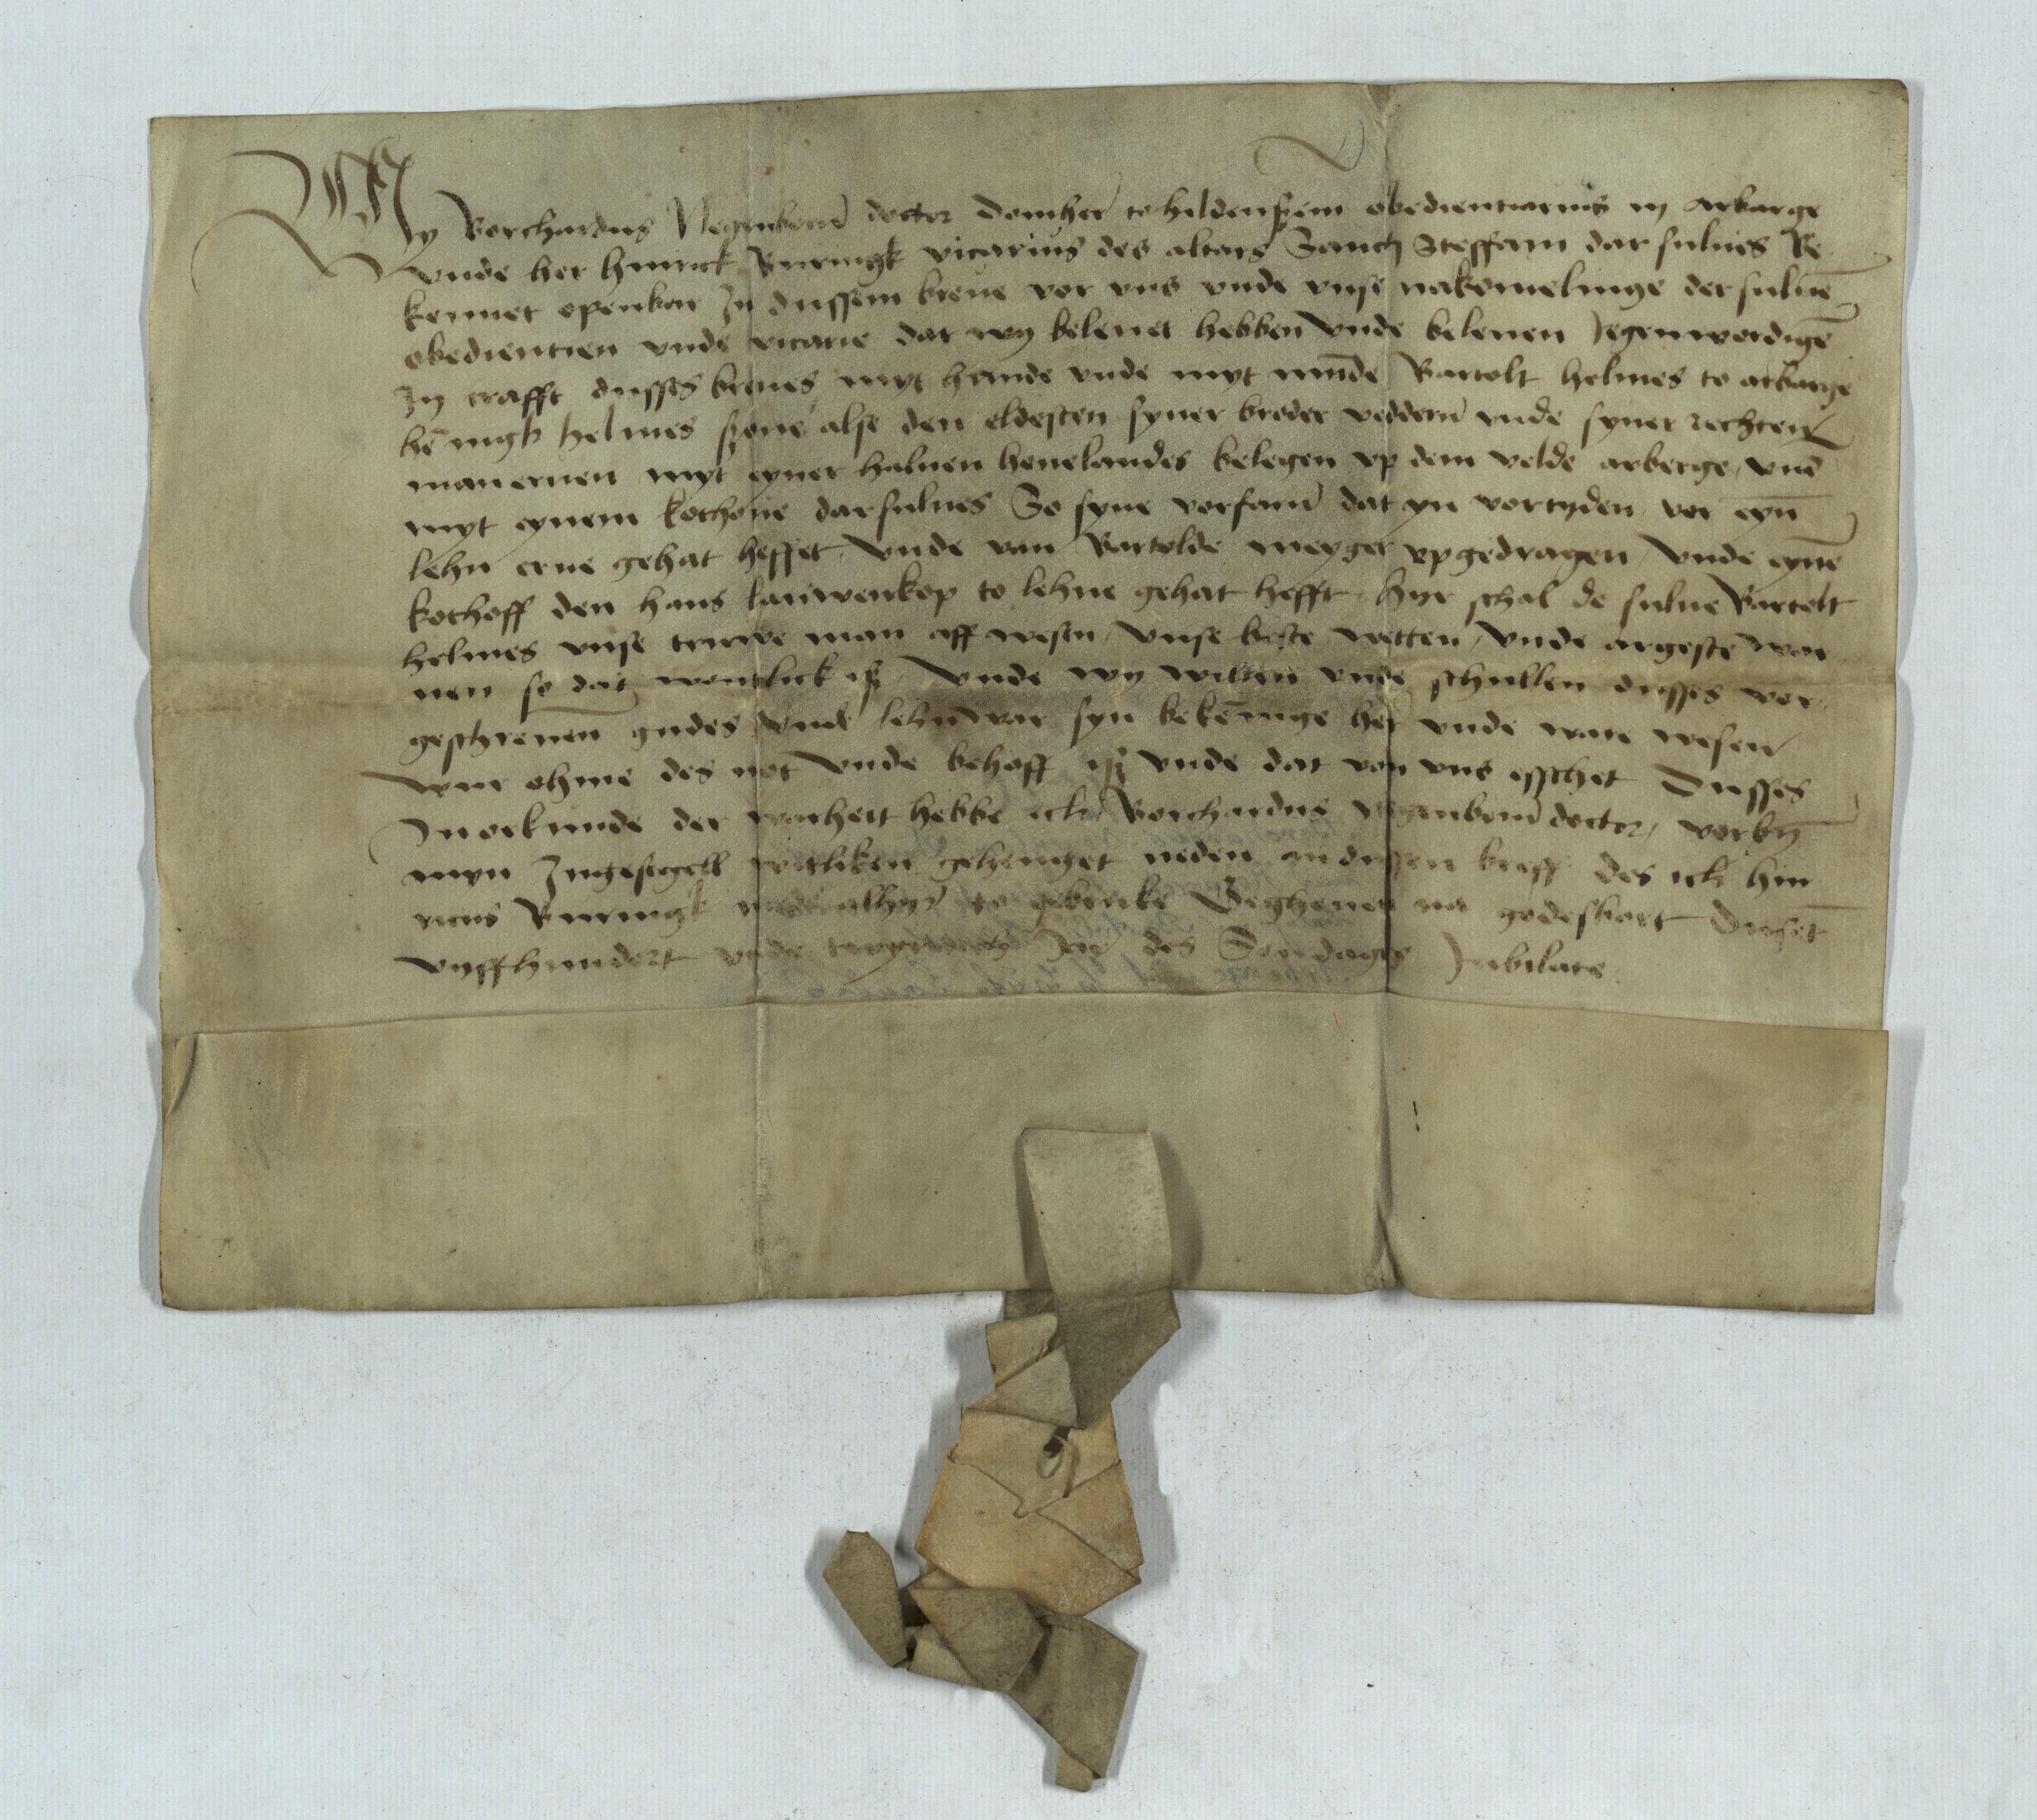 Wy Borchardus Negenborn̄ doctor domher to hildenßem obedientiarius in arbarge
vnde her hinrick Buringk vicarius des altars Sancti Steffani dar sulues Be
kennet openbar In dussem breue vor vns vnde vnse nakomelinge der suluē
obedientien vnde vicarie dat wy belenet hebben vnde belenen Jegenwordigē
In crafft dusses breues myt hande vnde myt mūde Bartolt helmes to arbarge
hēnigk helmes ßone alse den eldesten syner broder veddern̄ vnde syner rechten
manernen myt eyner haluen houelandes belegen vp dem velde arberge, vnd̄
myt eynem kothoue darsulues So syne vorfarn̄ dat yn vortyden vor eyn̄
lehn erue gehat heffet, vnde van Bartolde meyger vpgedragen, vnde eynē
kothoff den hans lauwenkop to lehne gehat hefft hyr schal de sulue Bartolt
helmes vnse truwe man aff wesen, vnse beste wetten, vnde argeste war
nen so dat wontlick iß, vnde wy willen vnde schullen dusses vor
geschreuen̄ gudes vnde lehnwar syn bekēnige her vnde ware wesen
wur ohme des not vnde behoff iß vnde dat von vns esschet Dusses
In orkunde der warheit hebbe ick Borchardus Negenborn̄ doctor,
myn Ingesegell witliken gehenget neden an dussen breff des ick hin
ricus Buringk mede alhyr to gebruke Geghenen na godesbort Duset
vyffhundert vnde Jar des Sondages Jubilate